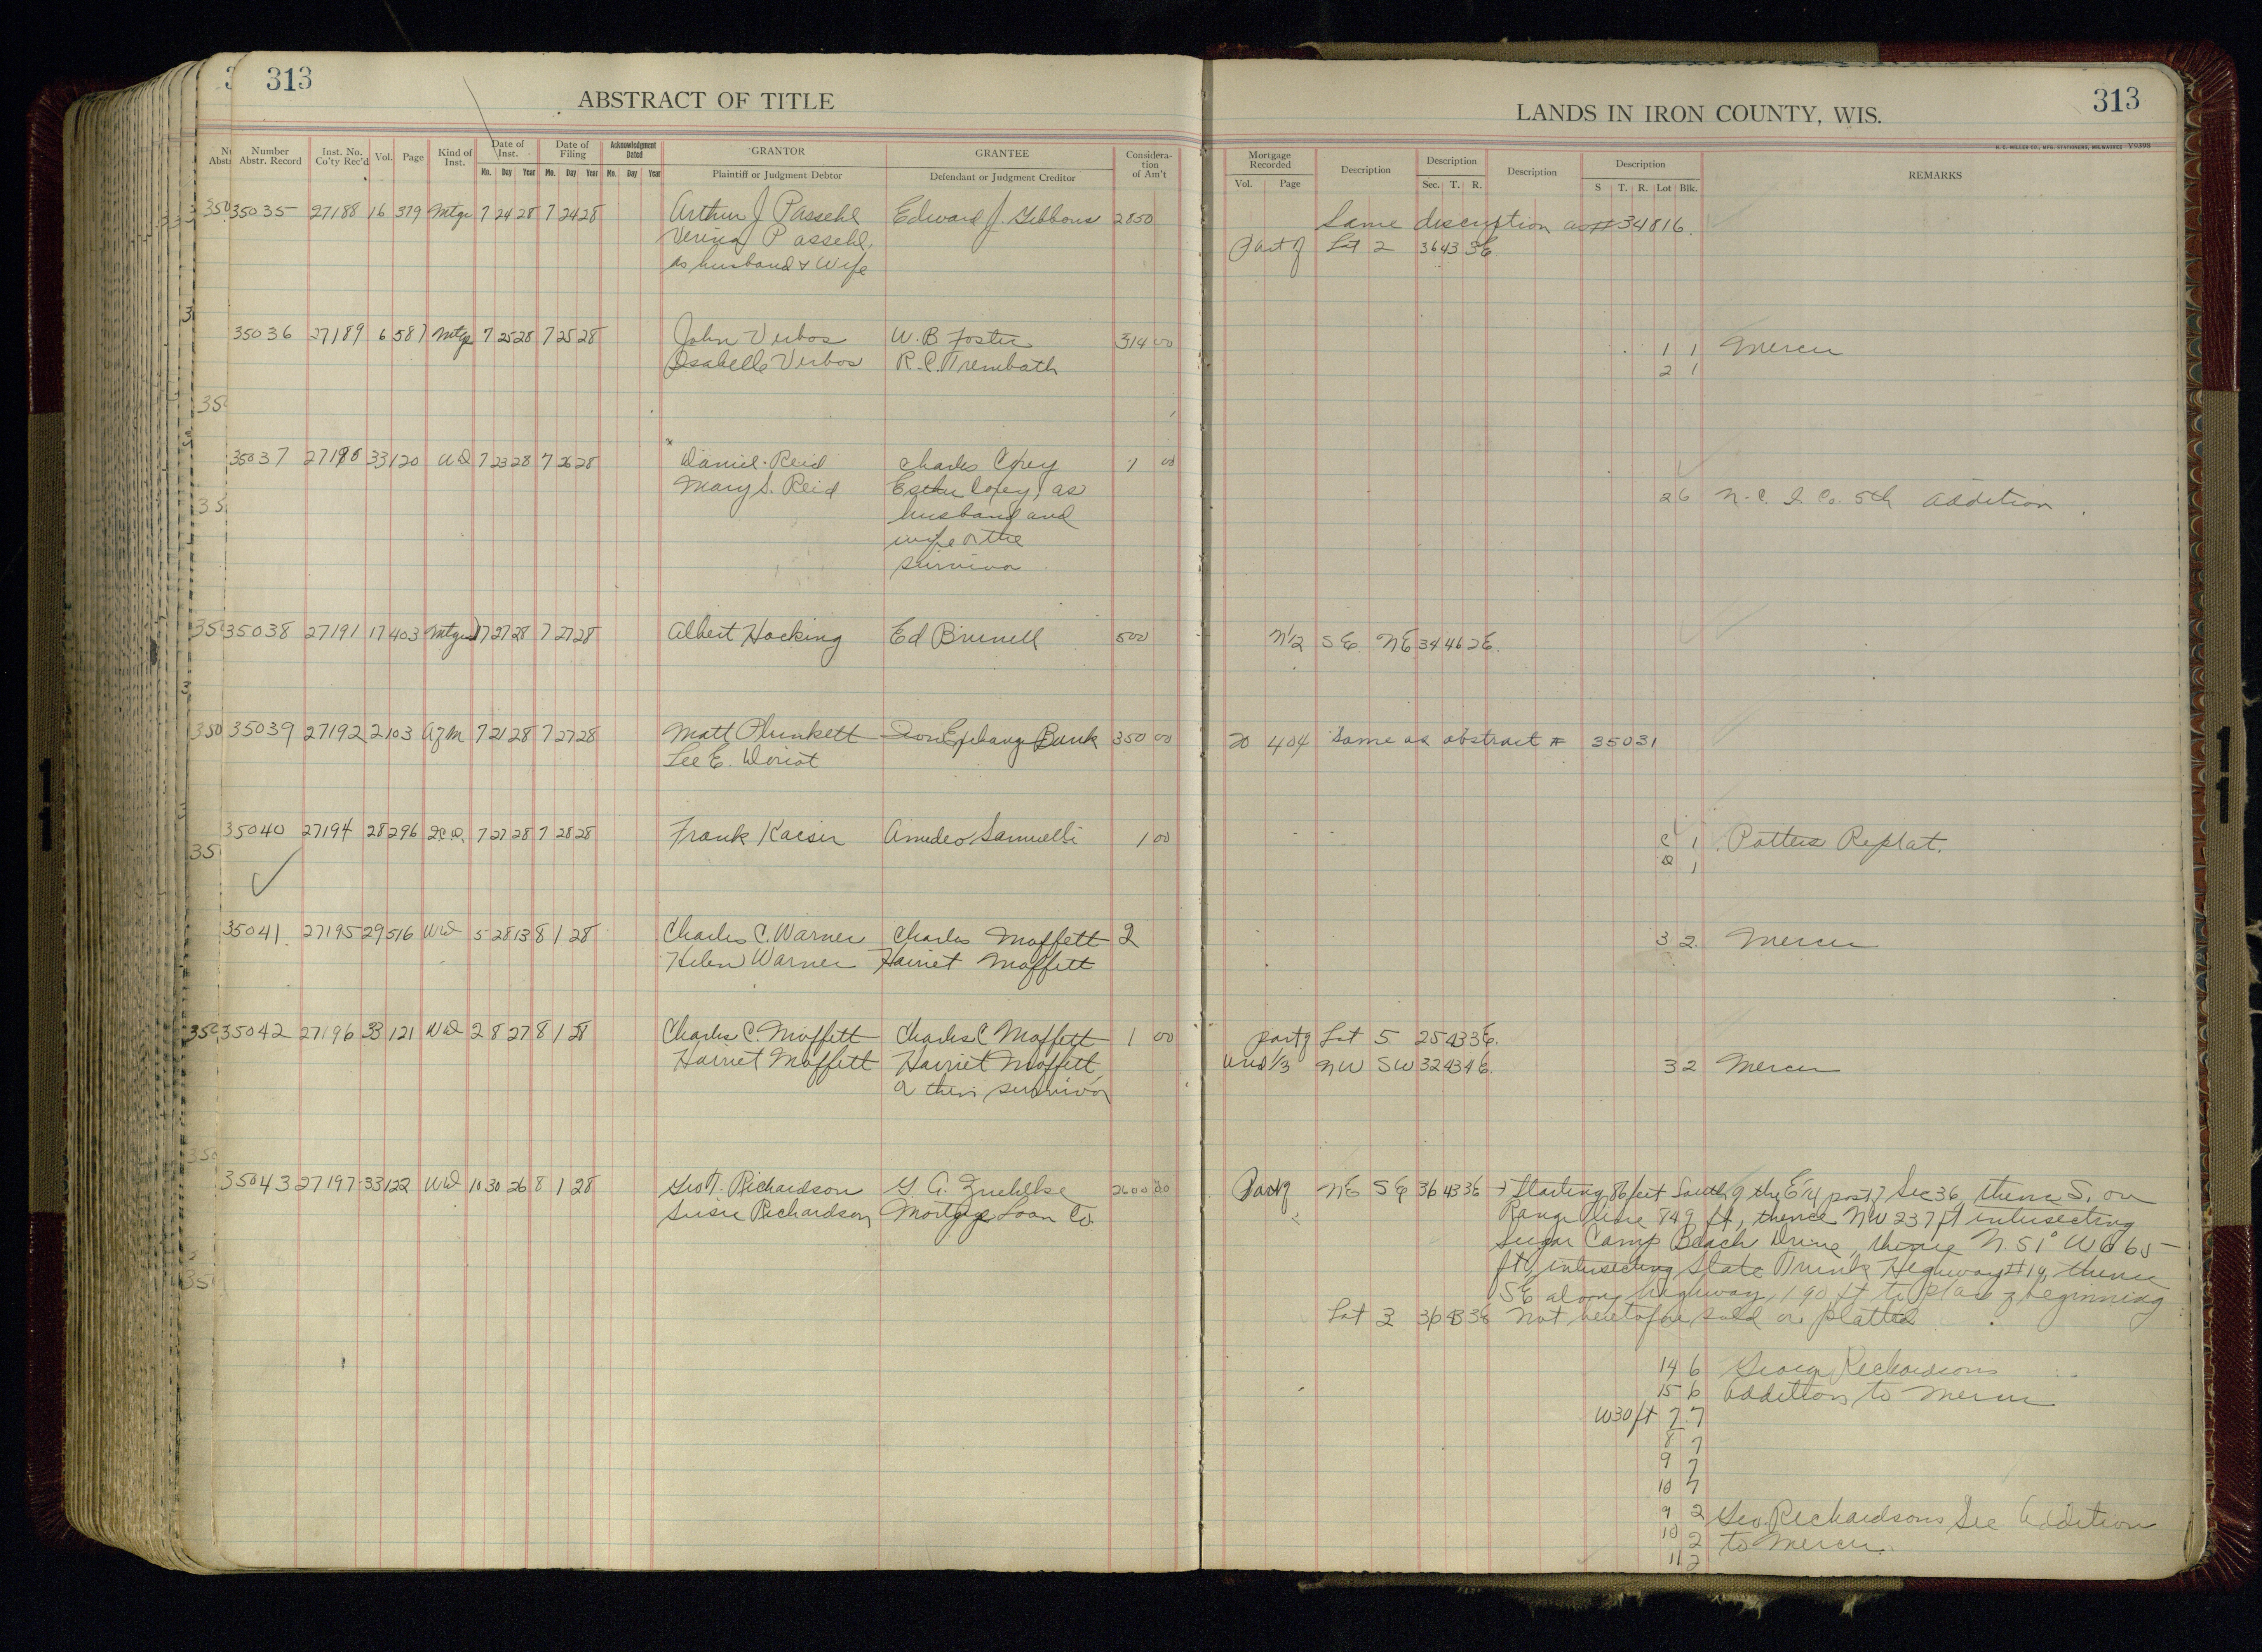 313
ABSTRACT OF TITLE
LANDS IN IRON COUNTY, WIS.
313
H. C. MILLER CO., MFG. STATIONERS, MILWAUKEE V9398
Number Abstr. Record
Inst. No. Co'ty Rec'd
Vol.
Page
Kind of Inst.
Date of Inst.
Mo. Day Year
Date of Filing
Mo. Day Year
Acknowledgment Dated
Mo. Day Year
GRANTOR
Plaintiff or Judgment Debtor
GRANTEE
Defendant or Judgment Creditor
Considera-tion of Am't
Mortgage Recorded
Vol. Page
Description
Description
Sec. T. R.
Description
Description
S T. R. Lot Blk.
REMARKS
35035 27188 16 379 Mtge 7 24 28 7 24 28 Arthur J Passehl Edward J. Gibbons 2850 Same description as # 34816.
Verina Passehl, Part of Lot 2 36 43 3E.
as husband & Wife
35036 27189 6 587 Mtge 7 25 28 7 25 28 John Verbos W. B Foster 314 00 1 1 Mercer
Isabelle Verbos R. C. Trembath 2 1
35037 27190 33 120 WD 7 23 28 7 26 28 Daniel Reid Charles Corey 1 00
Mary S. Reid Esther Corey, as 26 N. C. I. Co. 5th Addition
husband and
wife or the
survivor
35038 27191 17 403 7 27 28 7 27 28 Albert Hocking Ed Brunell 500 N 1/2 SE NE 34 46 2E.
35039 27192 2 103 AofM 7 21 28 7 27 28 Matt Plunkett Iron Exchange Bank 350 00 20 404 Same as abstract # 35031
Lee E. Doriot
35040 27194 28 296 QCD. 7 27 28 7 28 28 Frank Kaiser Amedeo Samuelli 1 00 C 1 Potters Replat.
D 1
35041 27195 29 516 WD 5 28 13 8 1 28 Charles C. Warner Charles Moffett 2 3 2 Mercer
Helen Warner Harriet Moffett
35042 27196 33 121 WD 2 8 27 8 1 28 Charles C. Moffett Charles C Moffett 1 00 part of Lot 5 25 43 3E.
Harriet Moffett Harriet Moffett, und 1/3 NW SW 32 43 4E. 3 2 Mercer
or their survivor
35043 27197 33 122 WD 10 30 26 8 1 28 Geo T. Richardson G. A. Zuehlke 2600 00 Part of NE SE 36 43 3E Starting 86 feet South of the E 1/4 post of Sec 36, thence S. on
Susie Richardson Mortgage Loan Co. Range line 849 ft, thence NW 237 ft intersecting
Sugar Camp Beach Drive, thence N. 51° W 665
ft, intersecting State Trunk Highway #19, thence
SE along highway, 190 ft to place of beginning
Lot 3 36 43 3E not heretofore sold or platted
14 6 George Richardsons
15 6 Addition to Mercer
W 30 ft 7 7
8 7
9 7
10 7
9 2 Geo. Richardsons Sec Addition
10 2 to Mercer.
11 2